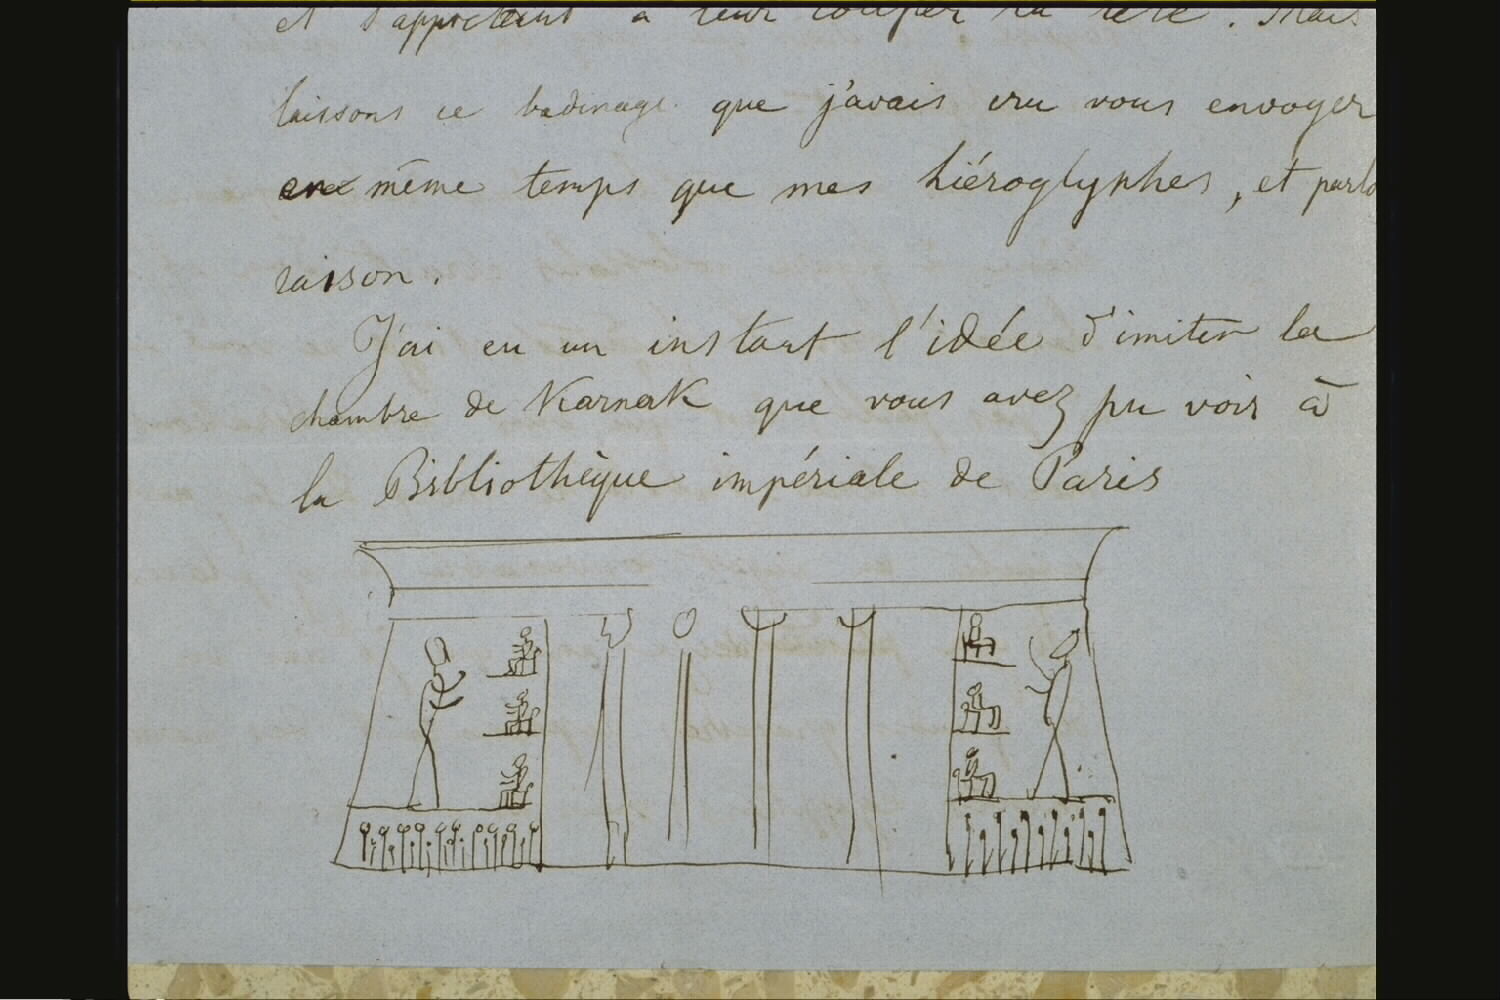 et s'apprêtent à leur couper la tête. Mais
laissons ce badinage que j'avais cru vous envoyer
en même temps que mes hiéroglyphes, et parlo
raison.
J'ai eu un instant l'idée d'imiter la
chambre de Karnak que vous avez pu voir à
la Bibliothèque impériale de Paris